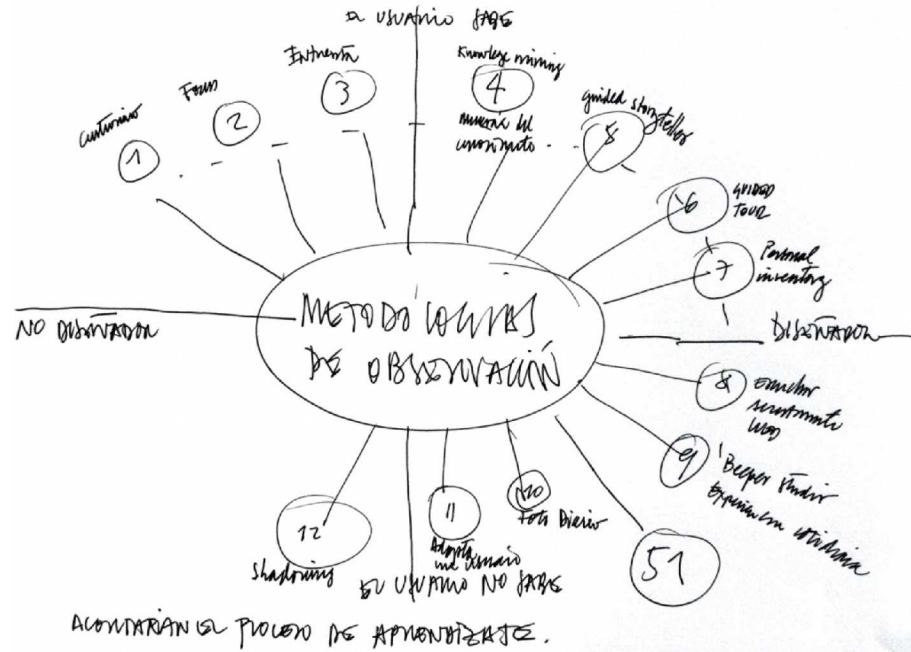 EL USUARIO SABE
Cuestionario
1
Focus
2
Entrevista
3
Knowlege mining
4
minería del
conocimiento
guided storyteller
5
6
GUIDED
TOUR
7
Personal
inventory
NO DISEÑADOR
METODOLOGÍAS
DE OBSERVACIÓN
DISEÑADOR
8
Escuchar
WEB
9
Beeper studio
Experiencia cotidiana
51
10
Foto Diario
11
Adopta
un usuario
12
Shadowing
EL USUARIO NO SABE
ACORTARÍAN EL PROCESO DE APRENDIZAJE.